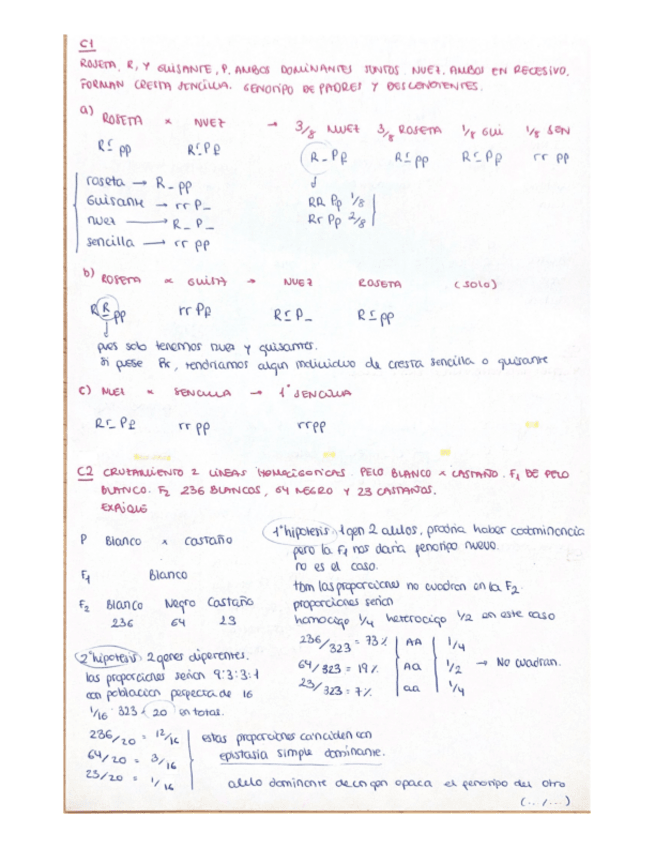 C1
ROSETA, R, Y GUISANTE, P, AMBOS DOMINANTES JUNTOS NUEZ. AMBOS EN RECESIVO,
FORMAN CRESTA SENCILLA. GENOTIPO DE PADRES Y DESCENDIENTES.
a) ROSETA × NUEZ → 3/8 NUEZ 3/8 ROSETA 1/8 GUI 1/8 SEN
Rr pp RrPp R_Pp Rr pp RrPp rr pp
roseta → R_pp
Guisante → rr P_
nuez → R_ P_
sencilla → rr pp
RR Pp 1/8
Rr Pp 2/8
b) ROSETA × GUISA → NUEZ ROSETA (SOLO)
RR pp rr Pp Rr P_ Rr pp
pues solo tenemos nuez y guisantes.
Si fuese Rr, tendriamos algun individuo de cresta sencilla o guisante
c) NUEZ × SENCILLA → 1ª SENCILLA
Rr_ Pp rr pp rrpp
C2 CRUZAMIENTO 2 LINEAS HOMOCIGOTICAS. PELO BLANCO × CASTAÑO. F1 DE PELO
BLANCO. F2 236 BLANCOS, 64 NEGRO Y 23 CASTAÑOS.
EXPLIQUE
P Blanco × castaño
F1 Blanco
F2 Blanco Negro Castaño
236 64 23
1ª hipotesis: 1 gen 2 alelos, podria haber codominancia
pero la F1 nos daria fenotipo nuevo.
no es el caso.
tbm las proporciones no cuadran en la F2.
proporciones serian
homocigo 1/4 heterocigo 1/2 en este caso
236/323 = 73% AA 1/4
64/323 = 19% Aa 1/2 → No cuadran.
23/323 = 7% aa 1/4
2ª hipotesis 2 genes diferentes.
las proporciones serian 9:3:3:1
con poblacion perfecta de 16
1/16 · 323 = 20 en total.
236/20 = 12/16
64/20 = 3/16
23/20 = 1/16
estas proporciones coinciden con
epistasia simple dominante.
alelo dominante de un gen opaca el fenotipo del otro
(.. / ...)